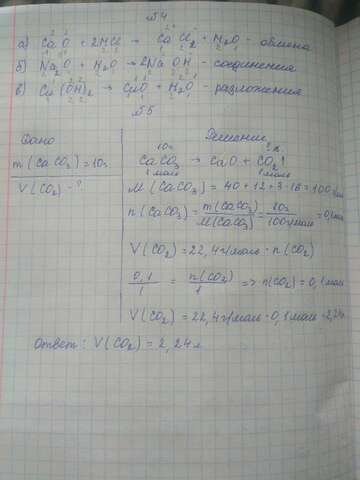 №4
а) CaO + 2HCl → CaCl₂ + H₂O - обмена
б) Na₂O + H₂O → 2NaOH - соединения
в) Cu(OH)₂ → CuO + H₂O - разложения
№5
Дано
m(CaCO₃) = 10г
V(CO₂) - ?
Решение
10г ? л
CaCO₃ → CaO + CO₂↑
1 моль 1 моль
M(CaCO₃) = 40 + 12 + 3·16 = 100
n(CaCO₃) = m(CaCO₃)/M(CaCO₃) = 10г/100г/моль = 0,1моль
V(CO₂) = 22,4 л/моль · n(CO₂)
0,1/1 = n(CO₂)/1 => n(CO₂) = 0,1моль
V(CO₂) = 22,4 л/моль · 0,1моль = 2,24л
Ответ: V(CO₂) = 2,24л